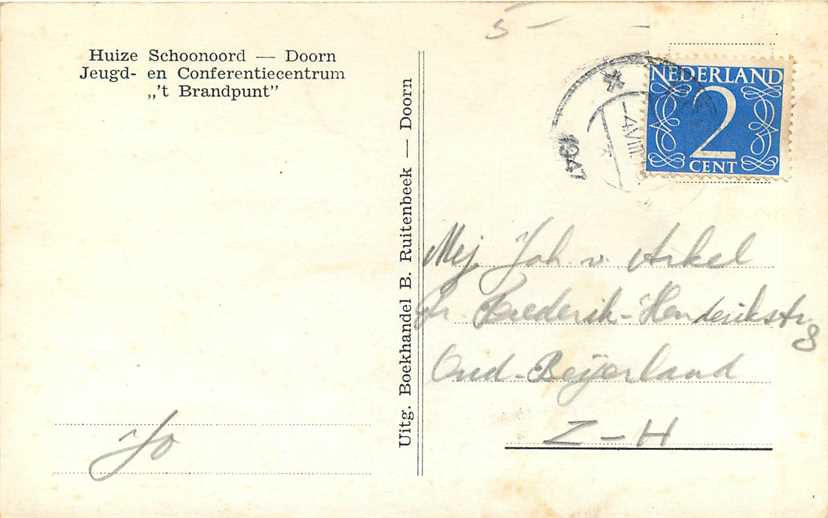 Huize Schoonoord — Doorn
Jeugd- en Conferentiecentrum
„'t Brandpunt"
Jo
Uitg. Boekhandel B. Ruitenbeek — Doorn
5-
NEDERLAND
2
CENT
-4.VIII
1947
Mej Joh v. Arkel
Pr. Frederik-Hendrikstr
Oud-Beijerland
Z-H